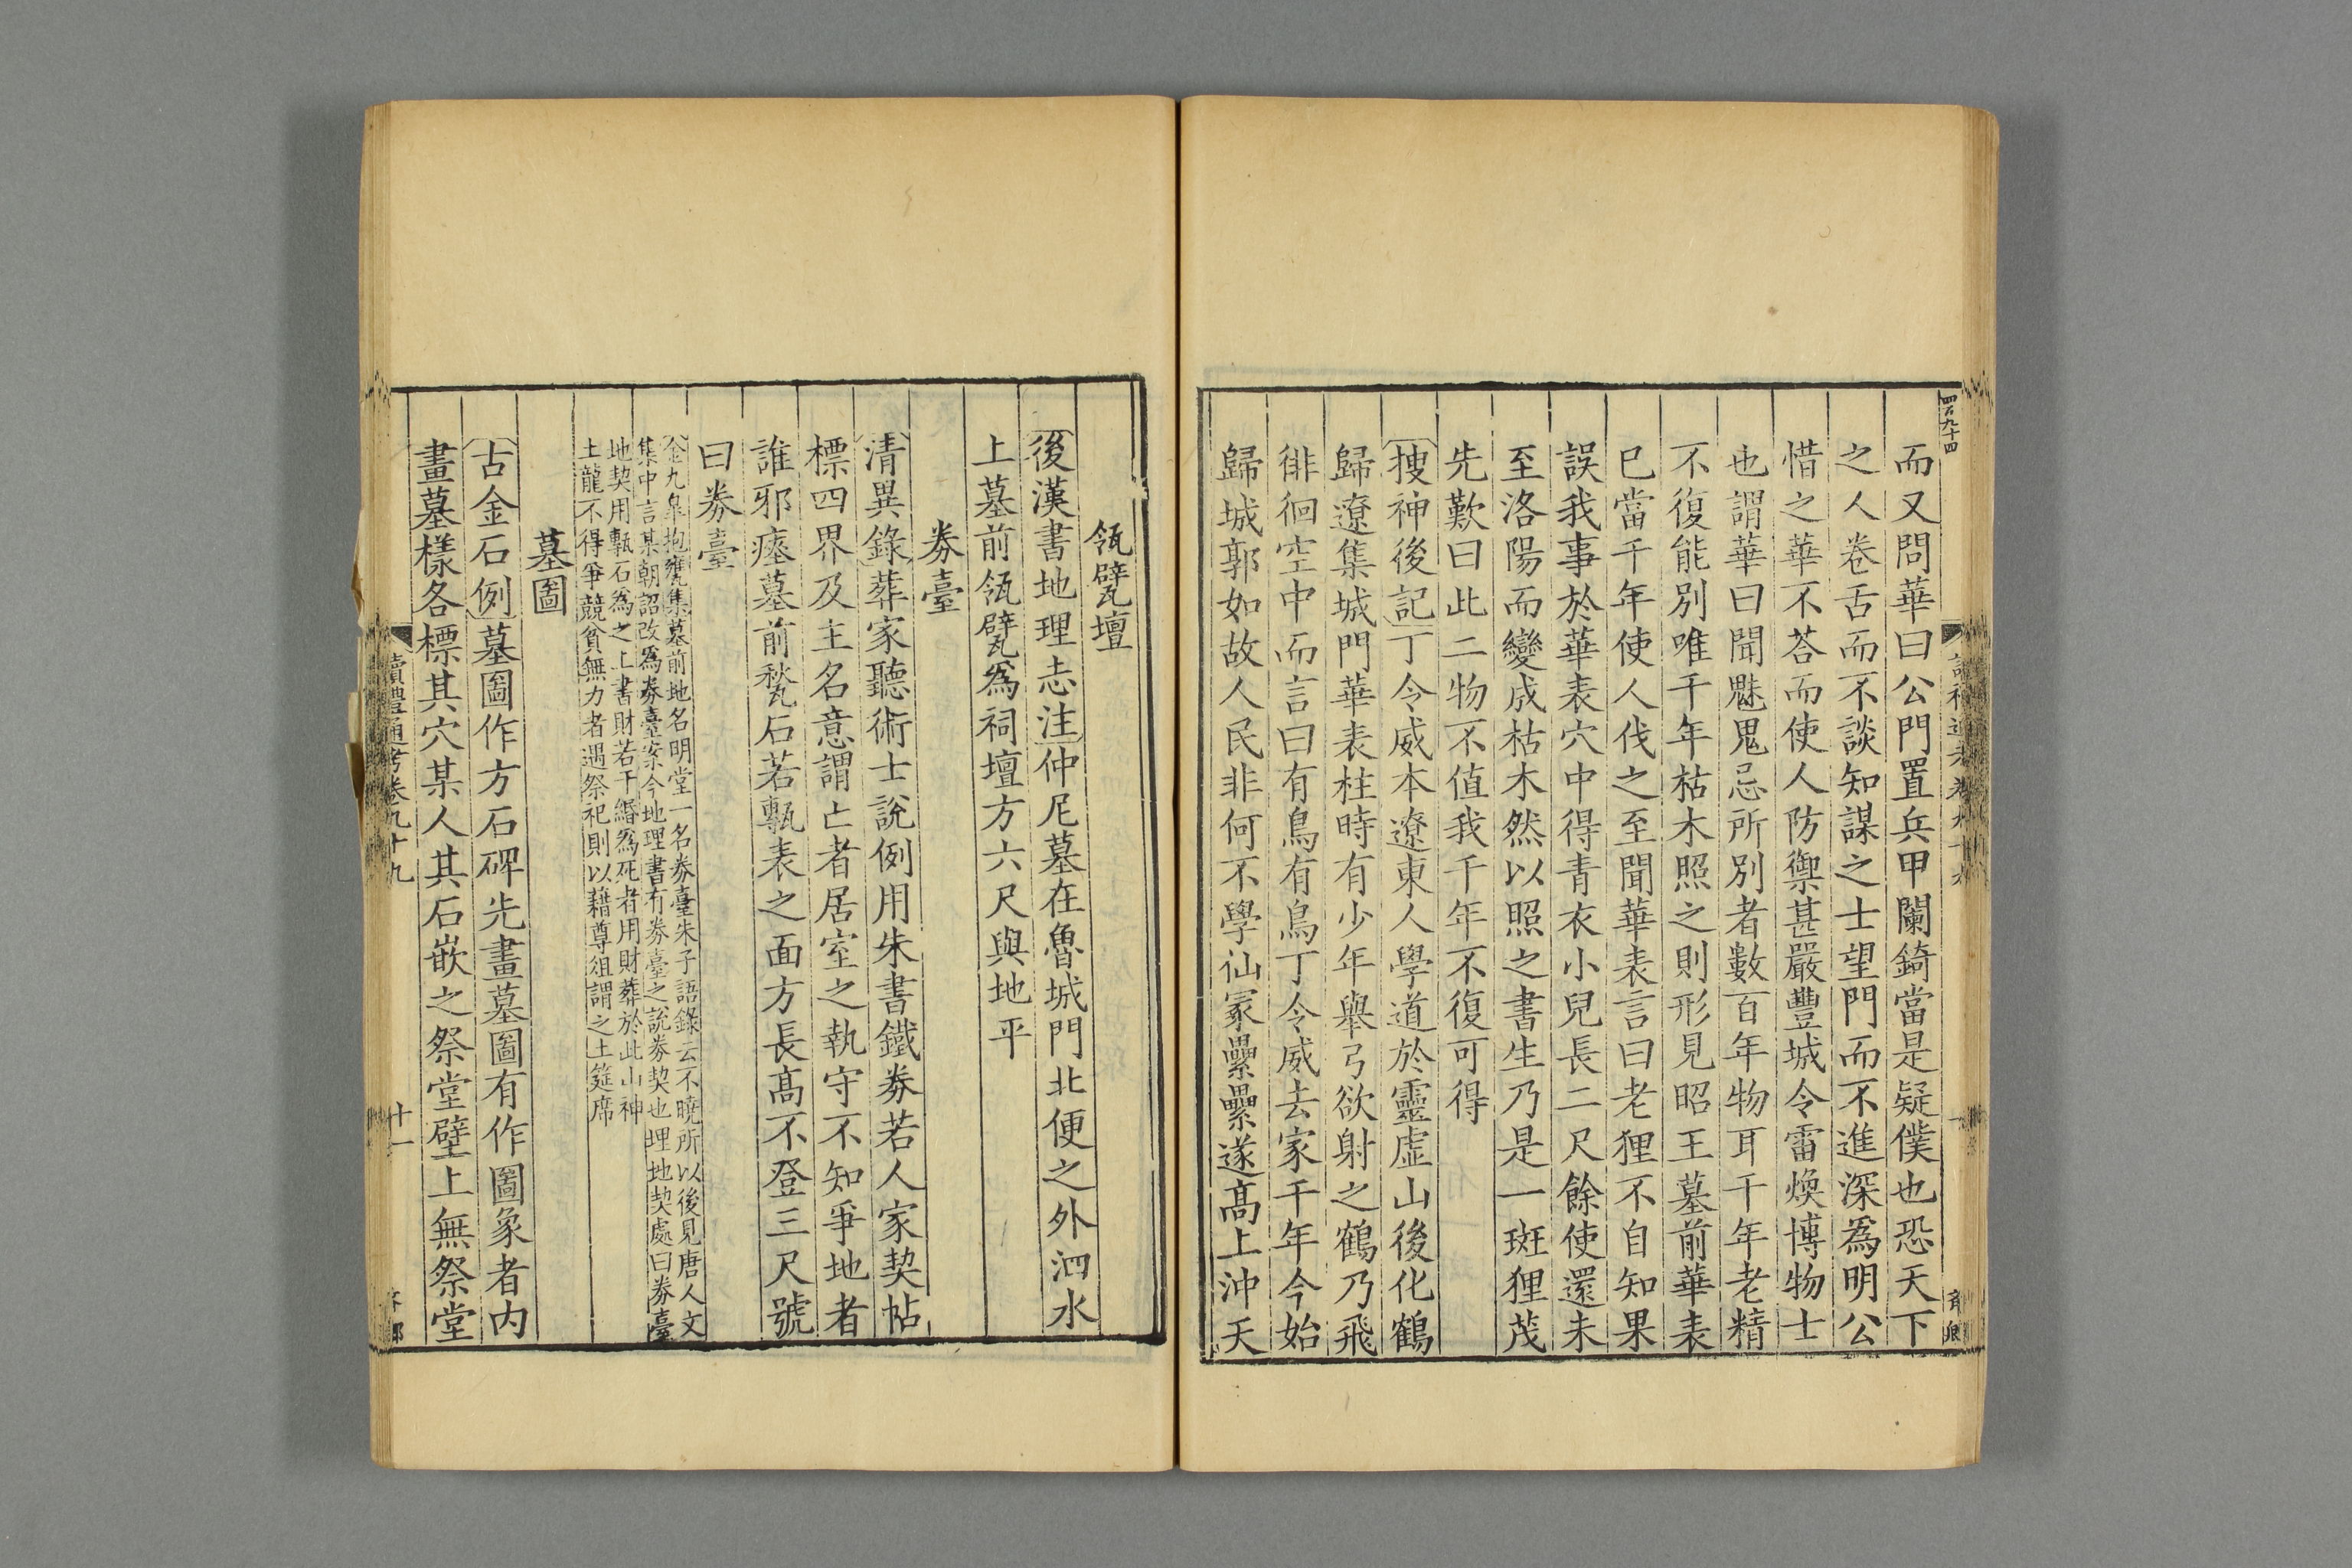 四百九十四
而又問華曰公門置兵甲闌錡當是疑僕也恐天下
之人卷舌而不談知謀之士望門而不進深爲明公
惜之華不荅而使人防禦甚嚴豐城令雷煥博物士
也謂華曰聞魅鬼忌所別者數百年物耳千年老精
不復能別唯千年枯木照之則形見昭王墓前華表
已當千年使人伐之至聞華表言曰老狸不自知果
誤我事於華表穴中得青衣小兒長二尺餘使還未
至洛陽而變成枯木然以照之書生乃是一斑狸茂
先歎曰此二物不值我千年不復可得
搜神後記丁令威本遼東人學道於靈虛山後化鶴
歸遼集城門華表柱時有少年舉弓欲射之鶴乃飛
徘徊空中而言曰有鳥有鳥丁令威去家千年今始
歸城郭如故人民非何不學仙冢纍纍遂高上沖天
瓴甓壇
後漢書地理志注仲尼墓在魯城門北便之外泗水
上墓前瓴甓爲祠壇方六尺與地平
券臺
清異錄葬家聽術士說例用朱書鐵券若人家契帖
標四界及主名意謂亡者居室之執守不知爭地者
誰邪瘞墓前甃石若甎表之面方長高不登三尺號
曰券臺
金九皋抱甕集墓前地名明堂一名券臺朱子語錄云不曉所以後見唐人文
集中言某朝詔改爲券臺案今地理書有券臺之說券契也埋地契處曰券臺
地契用甎石爲之上書財若干緡爲死者用財葬於此山神
土龍不得爭競貧無力者遇祭祀則以藉尊俎謂之土筵席
墓圖
古金石例墓圖作方石碑先畫墓圖有作圖象者内
畫墓樣各標其穴某人其石嵌之祭堂壁上無祭堂
讀禮通考卷九十九
十一